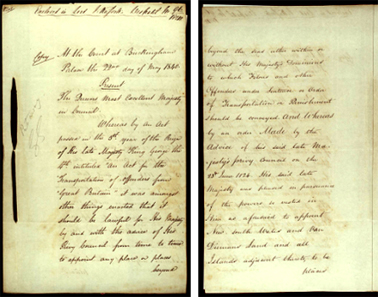 Copy
At the Court at Buckingham
Palace the 22nd day of May 1840.
Present
The Queens Most Excellent Majesty
in Council
Whereas by an Act
passed in the 5th year of the Reign
of His late Majesty King George the
4th intituled "An Act for the
Transportation of offenders from
Great Britain" it was amongst
other things enacted that it
should be lawful for His Majesty
by and with the advice of His
Privy Council from time to time
to appoint any place or places
beyond
beyond the seas either within or
without His Majesty's Dominions
to which Felons and other
Offenders under Sentence or Order
of Transportation or Banishment
should be conveyed And Whereas
by an order Made by the
Advice of his said late Ma-
jesty's Privy Council on the
23rd June 1824 His said late
Majesty was pleased in pursuance
of the powers so vested in
Him as aforesaid to appoint
New South Wales and Van
Diemens Land and all
Islands adjacent thereto to be
places